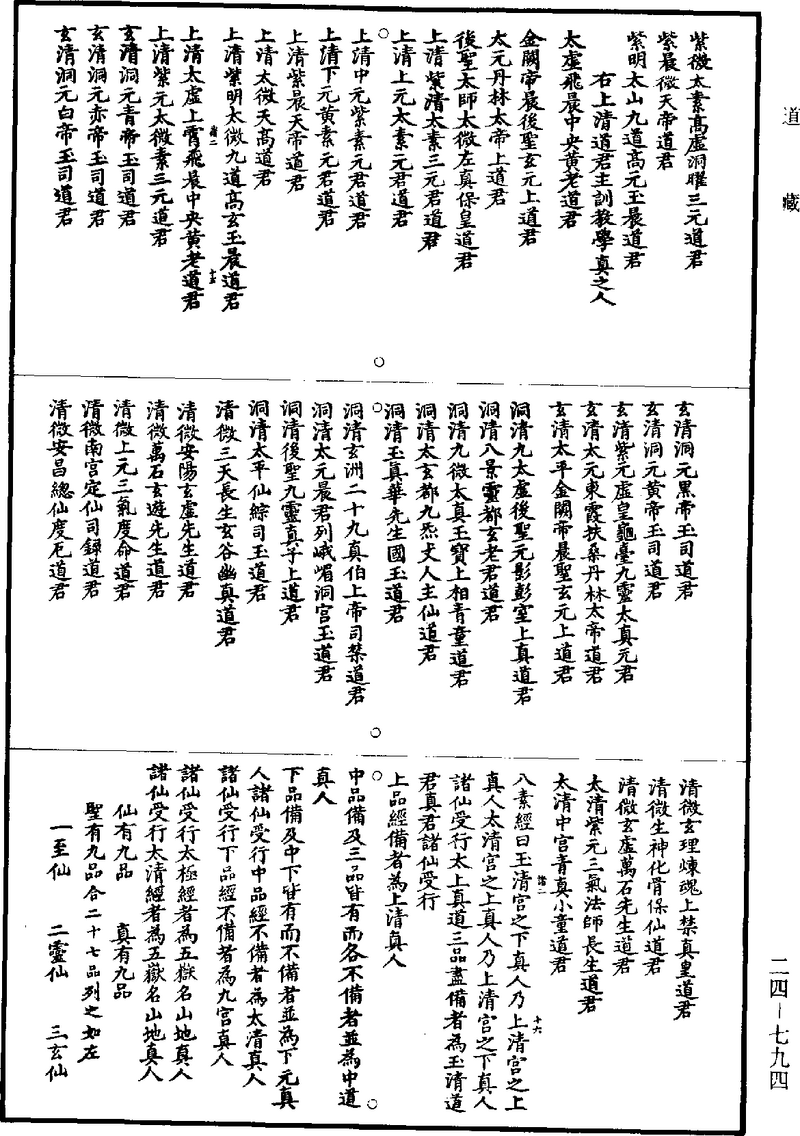 道藏
紫微太素高虛洞曜三元道君
紫晨微天帝道君
紫明太山九道高元玉晨道君
右上清道君主訓教學真之人
太虛飛晨中央黃老道君
金闕帝晨後聖玄元上道君
太元丹林太帝上道君
後聖太師太微左真保皇道君
上清紫清太素三元君道君
上清上元太素元君道君
上清中元紫素元君道君
上清下元黃素元君道君
上清紫晨天帝道君
上清太微天高道君
上清紫明太微九道高玄玉晨道君
諸二
十五
上清太虛上霄飛晨中央黃老道君
上清紫元太微素三元道君
玄清洞元青帝玉司道君
玄清洞元赤帝玉司道君
玄清洞元白帝玉司道君
玄清洞元黑帝玉司道君
玄清洞元黃帝玉司道君
玄清紫元虛皇龜臺九靈太真元君
玄清太元東霞扶桑丹林太帝道君
玄清太平金闕帝晨聖玄元上道君
洞清九太虛後聖元影彭室上真道君
洞清八景靈都玄老君道君
洞清九微太真玉寶上相青童道君
洞清太玄都九炁丈人主仙道君
洞清玉真華先生國玉道君
洞清玄洲二十九真伯上帝司禁道君
洞清太元晨君列峨嵋洞宮玉道君
洞清後聖九靈真子上道君
洞清太平仙綜司玉道君
清微三天長生玄谷幽真道君
清微安陽玄虛先生道君
清微萬石玄遊先生道君
清微上元三氣度命道君
清微南宮定仙司錄道君
清微安昌總仙度厄道君
清微玄理煉魂上禁真皇道君
清微生神化骨保仙道君
清微玄虛萬石先生道君
太清紫元三氣法師長生道君
太清中宮青真小童道君
諸二
十六
八素經曰玉清宮之下真人乃上清宮之上
真人太清宮之上真人乃上清宮之下真人
諸仙受行太上真道三品盡備者為玉清道
君真君諸仙受行
上品經備者為上清真人
中品備及三品皆有而各不備者並為中道
真人
下品備及中下皆有而不備者並為下元真
人諸仙受行中品經不備者為太清真人
諸仙受行下品經不備者為九宮真人
諸仙受行太極經者為五嶽名山地真人
諸仙受行太清經者為五嶽名山地真人
仙有九品　真有九品
聖有九品合二十七品列之如左
一至仙　二靈仙　三玄仙
二四—七九四